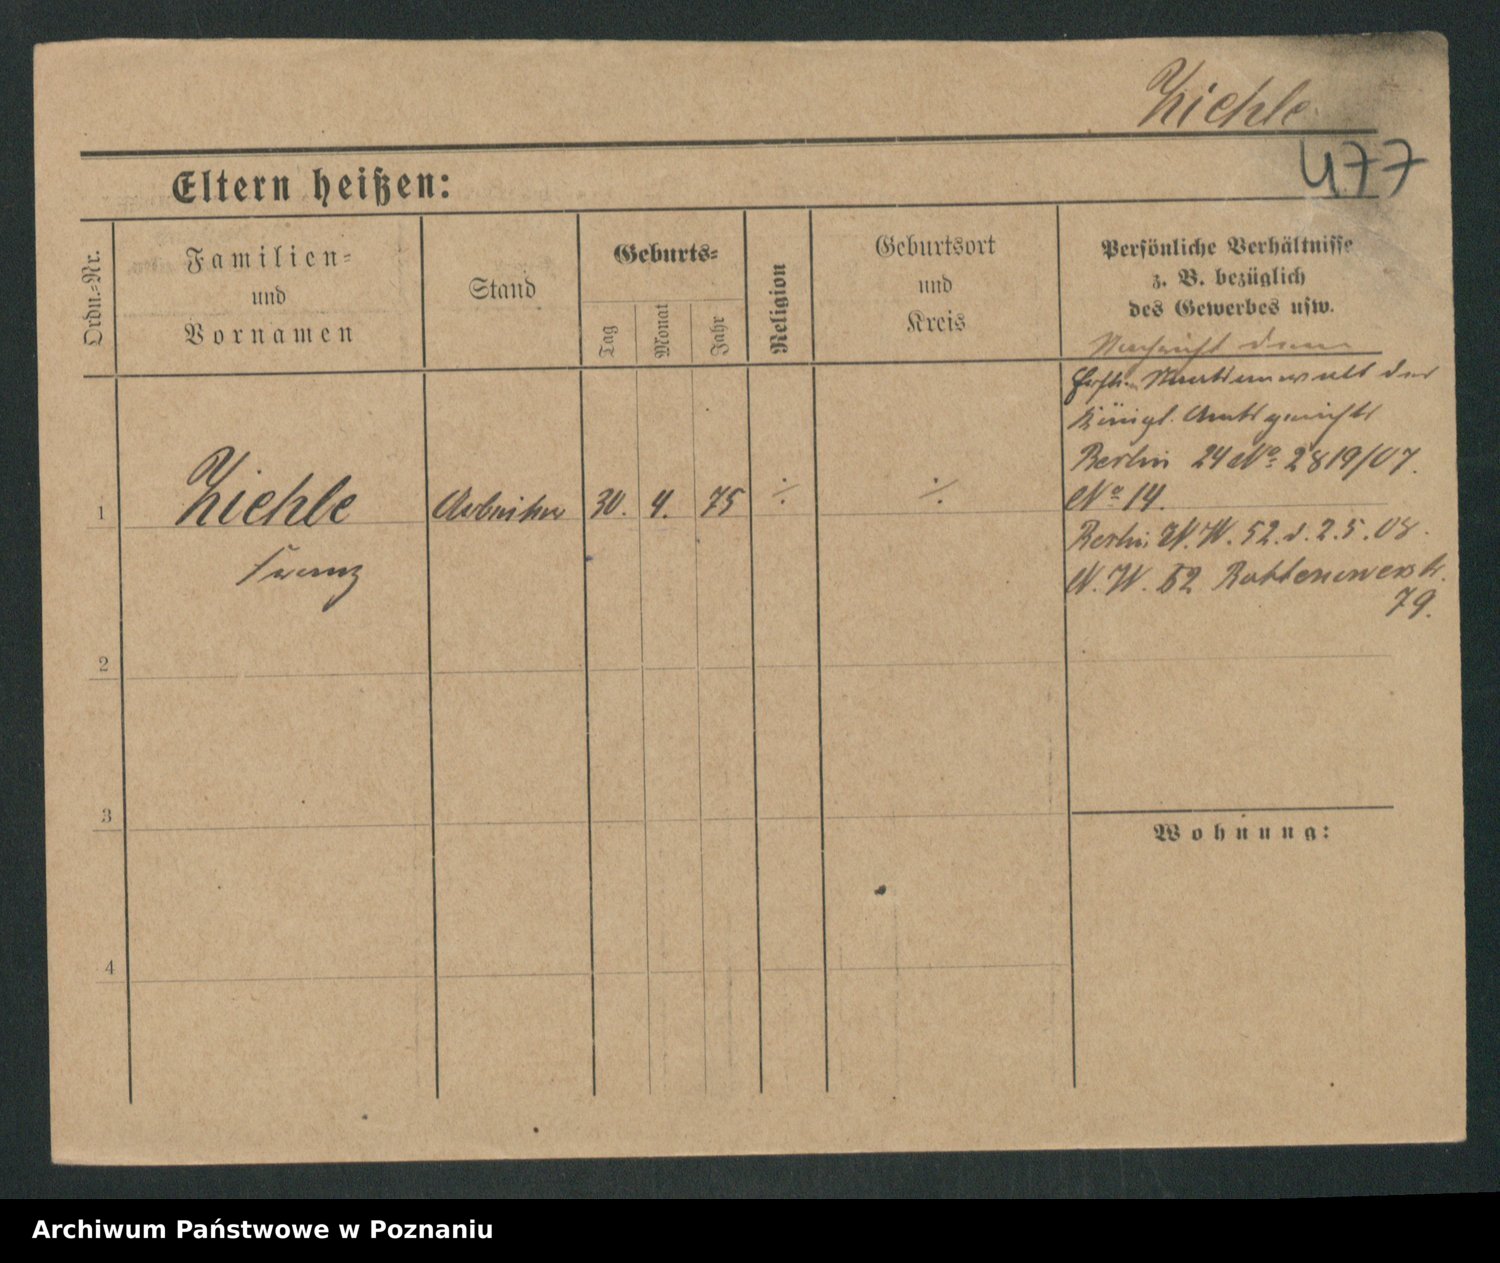 Ziehle
477
Eltern heißen:
Ordn.-Nr.
Familien-
und
Vornamen
Stand
Geburts-
Tag
Monat
Jahr
Religion
Geburtsort
und
Kreis
Persönliche Verhältnisse
z. B. bezüglich
des Gewerbes usw.
Nachricht dem
der
Königl. Amtsgerichts
Berlin 24 No 2819/07.
No 14.
Berlin N.W. 52. d. 2.5.08.
N.W. 52 Rathenowerstr.
79.
1
Ziehle
Arbeiter
30.
4.
75
÷
÷
Franz
2
3
4
Wohnung:
Archiwum Państwowe w Poznaniu